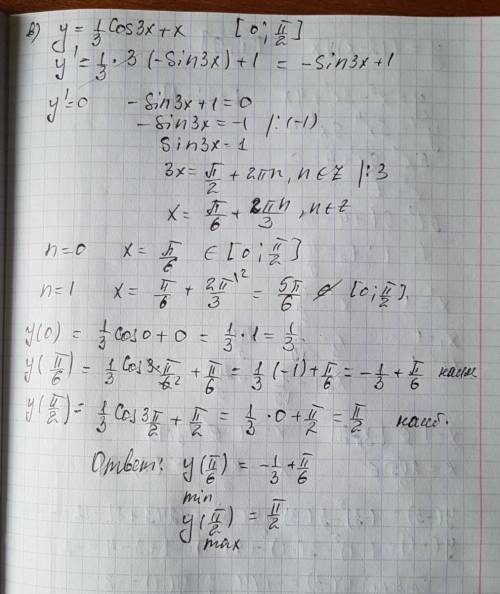 в) y = 1/3 cos3x + x [0; π/2]
y' = 1/3 · 3 (-sin3x) + 1 = -sin3x + 1
y' = 0 - sin3x + 1 = 0
- sin3x = -1 /:(-1)
sin3x = 1
3x = π/2 + 2πn, n ∈ z /:3
x = π/6 + 2πn/3, n ∈ z
n=0 x = π/6 ∈ [0; π/2]
n=1 x = π/6 + 2π/3 ^2 = 5π/6 ∉ [0; π/2].
y(0) = 1/3 cos0 + 0 = 1/3 · 1 = 1/3.
y(π/6) = 1/3 cos3·π/6 2 + π/6 = 1/3 (-1) + π/6 = -1/3 + π/6 наим
y(π/2) = 1/3 cos3π/2 + π/2 = 1/3 · 0 + π/2 = π/2 наиб.
Ответ: y(π/6) = -1/3 + π/6
min
y(π/2) = π/2
max